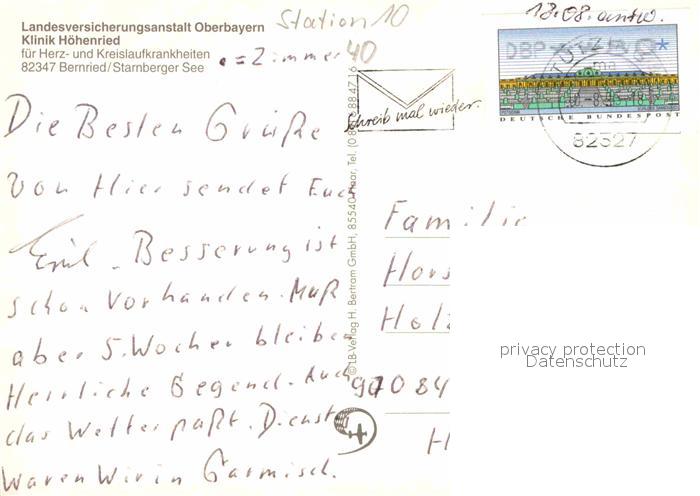 Landesversicherungsanstalt Oberbayern
Klinik Höhenried
für Herz- und Kreislaufkrankheiten
82347 Bernried/Starnberger See
Station 10
= Zimmer 40
13.08. antw.
Schreib mal wieder.
DBP
DEUTSCHE BUNDESPOST
82327
Die Besten Grüße
von Hier sendet Euch
Emil. Besserung ist
schon vorhanden. Muß
aber 5. Wochen bleiben
Herrliche Gegend. Auch
das Wetter paßt. Dienst
waren Wir in Garmisch.
© LB-Verlag H. Bertram GmbH, 85540 Haar, Tel.
Familie
Hors
Holz
97084
H
privacy protection
Datenschutz